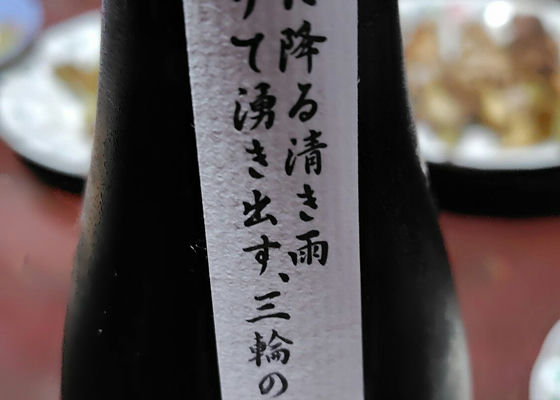 に降る清き雨
けて湧き出す、三輪の